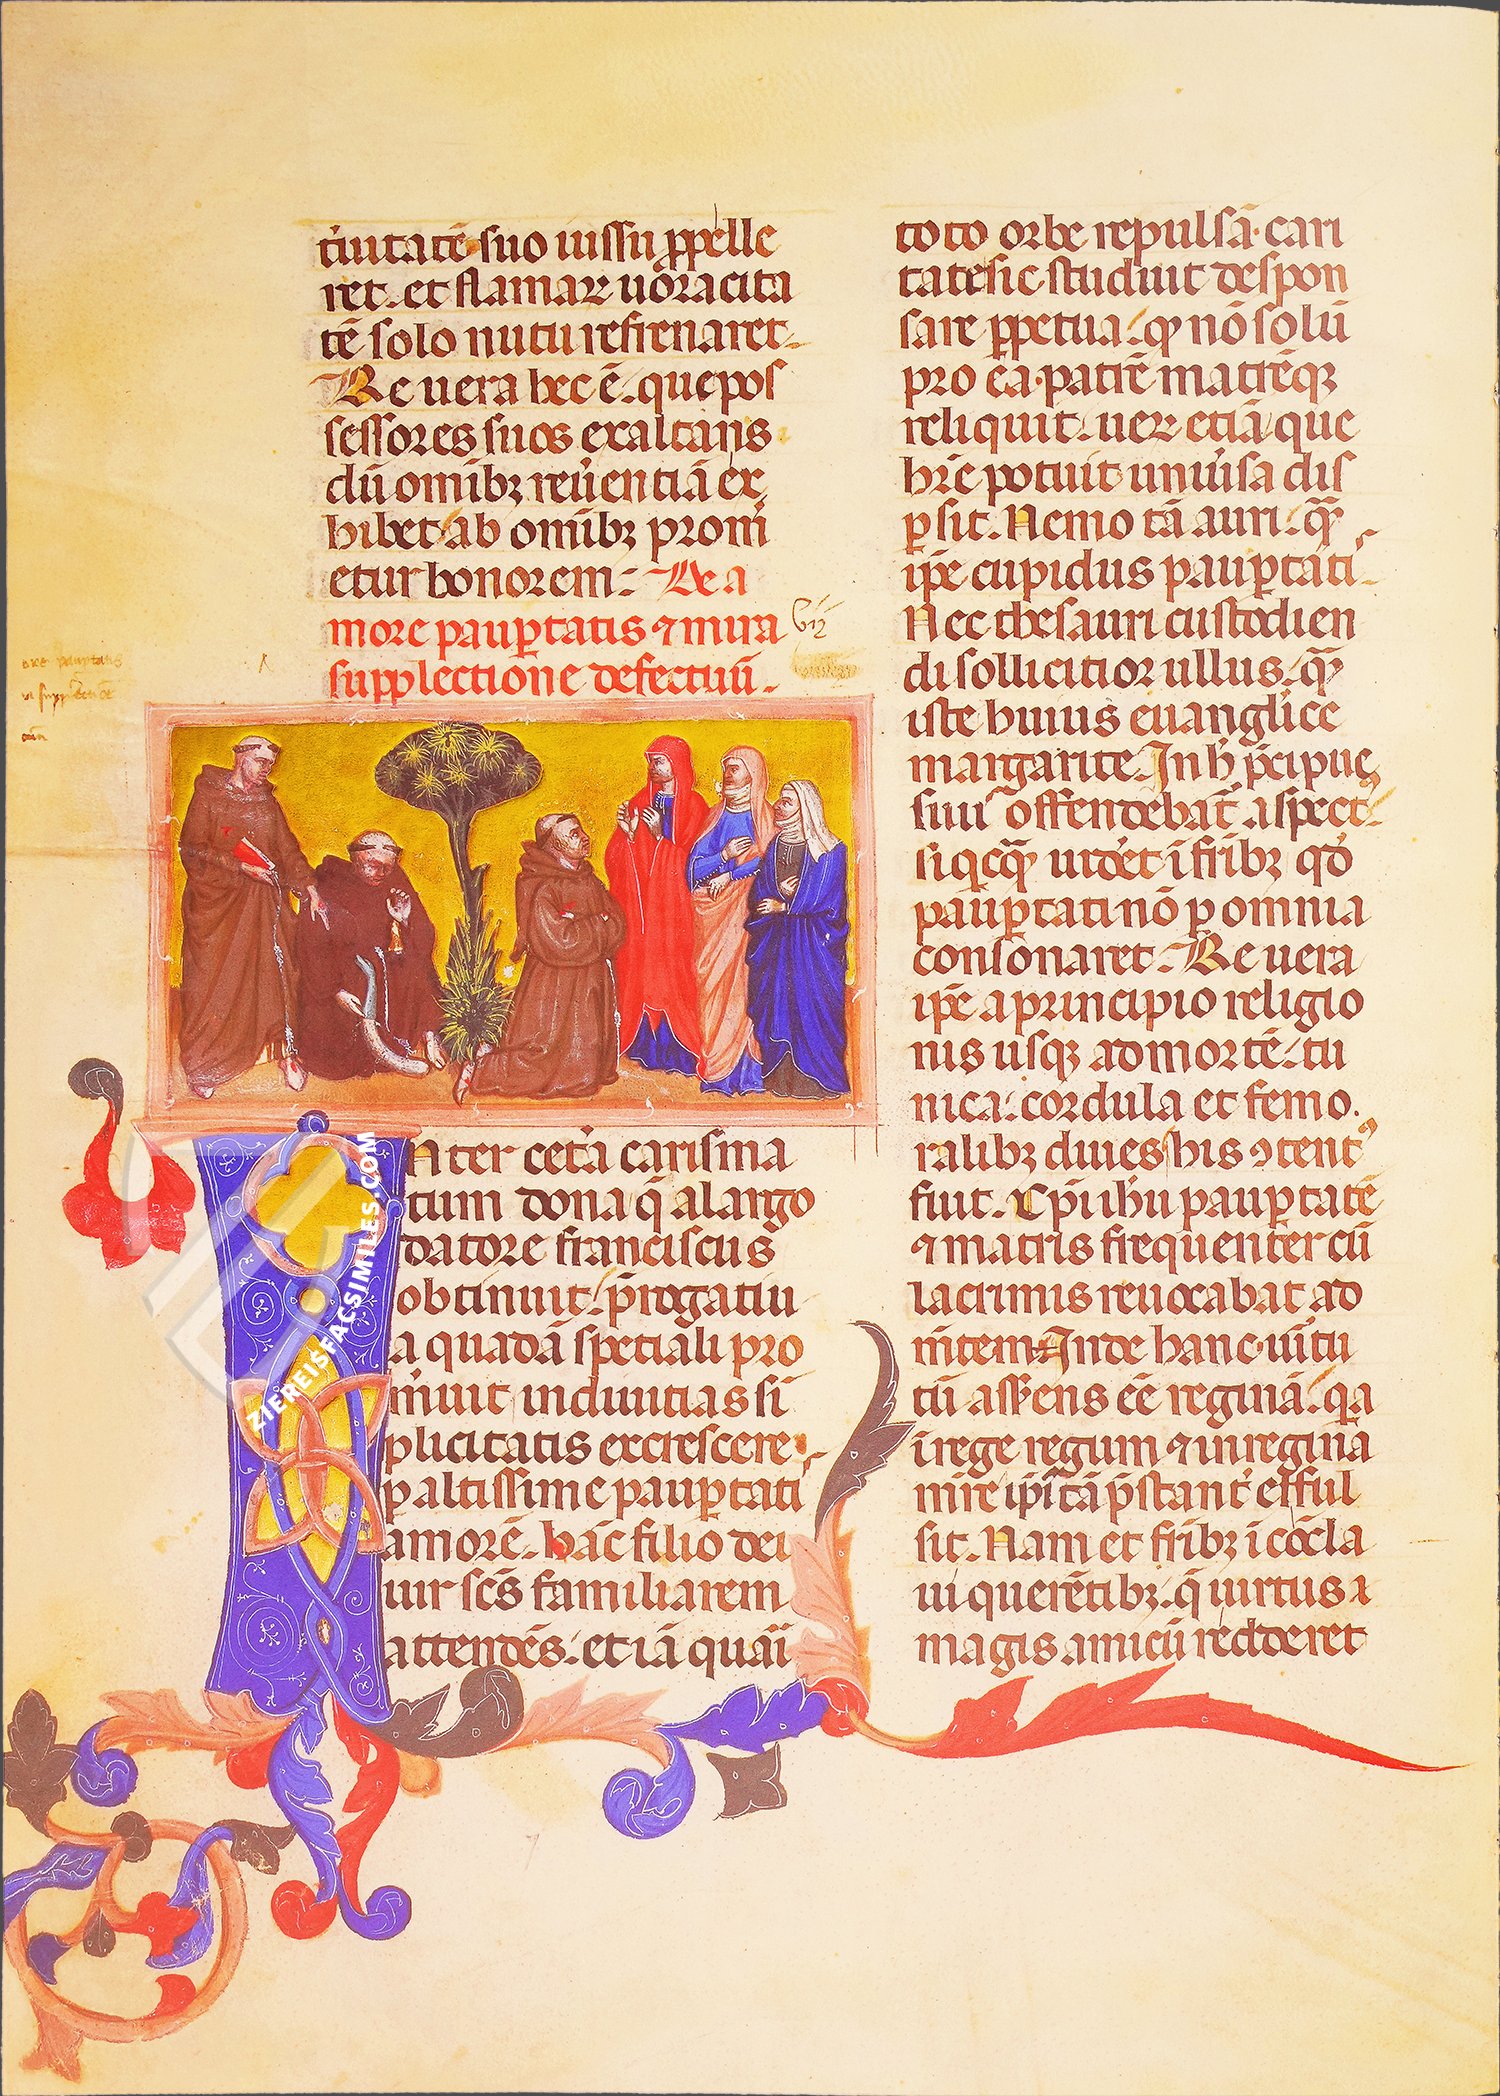 ctiuitatē suo iussu ꝓpelle
ret. et flamaꝝ uoracita
tē solo nutu refrenaret.
Re uera hec ē. que pos
sessores suos exaltans
dū omībꝫ reuerentiā ex
hibet ab omībꝫ prom
etur honorem: De a
more pauꝑtatis ⁊ mira
supplectione defectuū.
Nter cetera carisma
tum dona q̄ a largo
datore franciscus
obtinuit. p̄rogatiu
a quadā speciali pro
meruit in diuitias si
plicitatis excrescere
ꝑ altissime pauꝑtati
amorē. hāc filio dei
uir scs̄ familiarem
attendēs. et iā quasi
toto orbe repulsā. cari
tate sic studuit despon
sare ꝑpetua. ꝙ nō solū
pro ea patrē matrēqꝫ
reliquit. ueꝝ etiā que
hr̄e potuit uniuersa dis
ꝑsit. Nemo tā auri. qͣm
ip̄e cupidus pauꝑtati.
Nec thesauri custodien
di sollicitior ullus. qͣm
iste huius euanglice
margarite. In h̄ p̄cipue
siui offendebat᷑ aspect᷒.
si qicqͣm uideret ī fribꝫ qd̓
pauꝑtati nō ꝑ omnia
consonaret. Re uera
ip̄e a principio religio
nis usqꝫ ad mortē. tu
nica. cordula et femo.
ralibꝫ diues his ꝯtent᷒
fuit. Xp̄i ihū pauꝑtatē
⁊ matris frequenter cū
lacrimis reuocabat ad
mētem. Inde hanc uirtu
tū assēens eē reginā. qa
ī rege regum ⁊ in regina
mr̄e ip̄i tā p̄stant᷑ efful
sit. Nam et fribꝫ ī cōcla
ui querētibꝫ. q̄ uirtus x
magis amicū redderet
ZIEREISFACSIMILES.COM